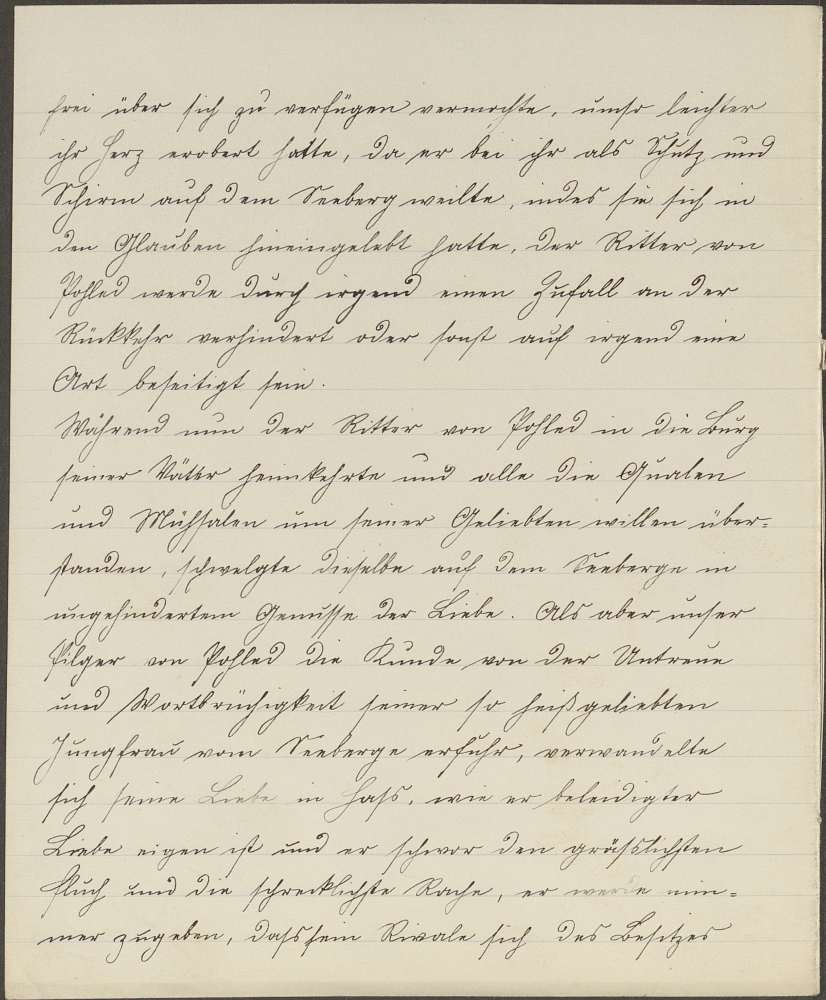 frei über sich zu verfügen vermochte, umso leichter
ihr Herz erobert hatte, da er bei ihr als Schutz und
Schirm auf dem Seeberg weilte, indes sie sich in
den Glauben hineingelebt hatte, der Ritter von
Pohled werde durch irgend einen Zufall an der
Rückkehr verhindert oder sonst auf irgend eine
Art beseitigt sein.
Während nun der Ritter von Pohled in die Burg
seiner Väter heimkehrte und alle die Qualen
und Mühsalen um seiner Geliebten willen über=
standen, schwelgte dieselbe auf dem Seeberge in
ungehindertem Genusse der Liebe. Als aber unser
Pilger von Pohled die Kunde von der Untreue
und Wortbrüchigkeit seiner so heißgeliebten
Jungfrau vom Seeberge erfuhr, verwandelte
sich seine Liebe in Hass, wie er beleidigter
Liebe eigen ist und er schwor den grässlichsten
Fluch und die schrecklichste Rache, er werde nim=
mer zugeben, dass sein Rivale sich des Besitzes